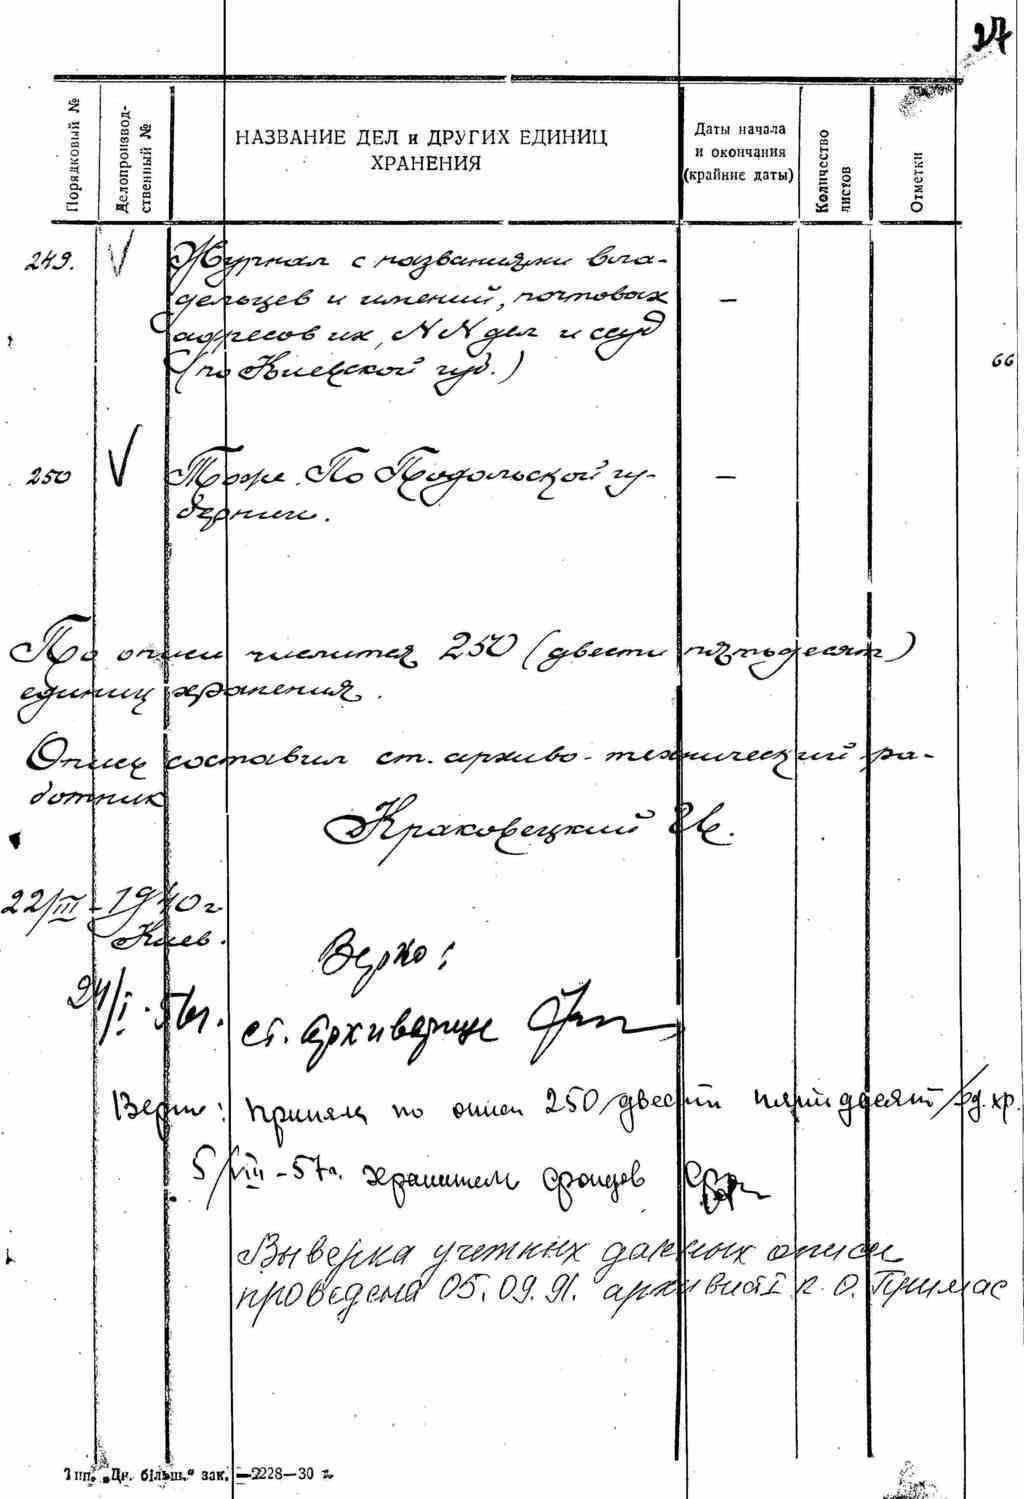 27
Порядковый №
Делопроизвод-
ственный №
НАЗВАНИЕ ДЕЛ и ДРУГИХ ЕДИНИЦ
ХРАНЕНИЯ
Даты начала
и окончания
(крайние даты)
Количество
листов
Отметки
249. V Журнал с названиями вла-
дельцев и имений, почтовых —
адресов их, NN дел и ссуд
(по Киевской губ.)
66
250 V Тоже. По Подольской гу- —
бернии.
По описи числится 250 (двести пятьдесят)
единиц хранения.
Опись составил ст. архиво-технический ра-
ботник
Краковецкий
22/III - 1940 г.
Киев.
Верно:
24/I. 56 г. ст. архивариус
Верно: Приняла по описи 250 /двести пятьдесят/ ед. хр.
5/VIII - 57 г. хранитель фондов
Выверка учетных данных описи
проведена 05.09.91. архивист I к. О. Примас
Тип. „Дн. більш.“ зак. —2228—30 г.